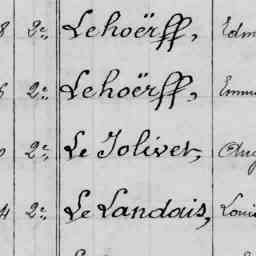 8 2e. Lehoërff, Edm
6 2e. Lehoërff, Emm
2e. Le Jolivet, Aug
4 2e. Le Landais, Loui